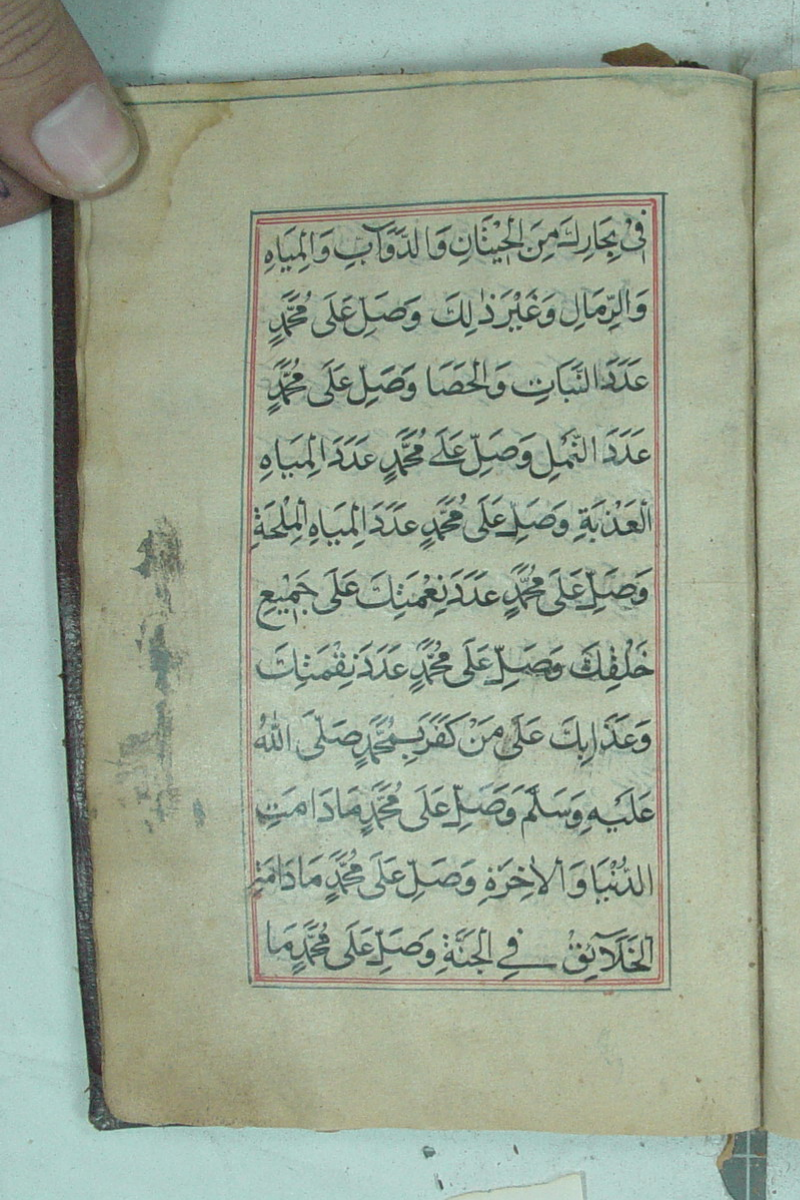 فِى بِحَارِكَ مِنَ الْحِيْتَانِ وَالدَّوَآبِّ وَالْمِيَاهِ
وَالرِّمَالِ وَغَيْرَ ذٰلِكَ وَصَلِّ عَلَى مُحَمَّدٍ
عَدَدَ النَّبَاتِ وَالْحَصَا وَصَلِّ عَلَى مُحَمَّدٍ
عَدَدَ النَّمْلِ وَصَلِّ عَلَى مُحَمَّدٍ عَدَدَ الْمِيَاهِ
الْعَذْبَةِ وَصَلِّ عَلَى مُحَمَّدٍ عَدَدَ الْمِيَاهِ الْمِلْحَةِ
وَصَلِّ عَلَى مُحَمَّدٍ عَدَدَ نِعْمَتِكَ عَلَى جَمِيْعِ
خَلْقِكَ وَصَلِّ عَلَى مُحَمَّدٍ عَدَدَ نِقْمَتِكَ
وَعَذَابِكَ عَلَى مَنْ كَفَرَ بِمُحَمَّدٍ صَلَّى اللهُ
عَلَيْهِ وَسَلَّمَ وَصَلِّ عَلَى مُحَمَّدٍ مَا دَامَتِ
الدُّنْيَا وَالْاٰخِرَةِ وَصَلِّ عَلَى مُحَمَّدٍ مَا دَامَتِ
الْخَلَآئِقُ فِي الْجَنَّةِ وَصَلِّ عَلَى مُحَمَّدٍ مَا